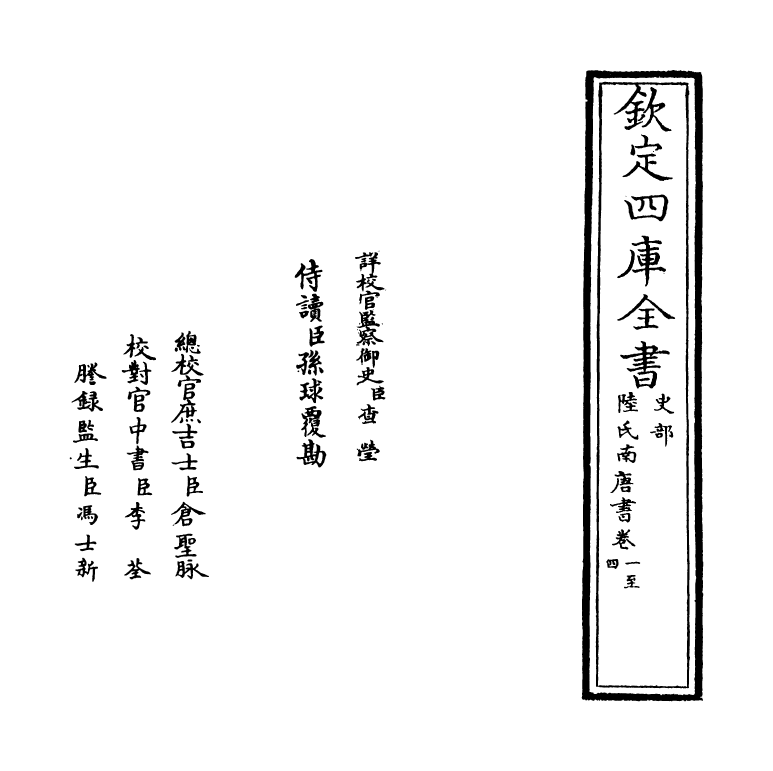 欽定四庫全書
史部
陸氏南唐書卷一至四
詳校官監察御史臣查瑩
侍讀臣孫球覆勘
總校官庶吉士臣倉聖脉
校對官中書臣李荃
謄録監生臣馮士新